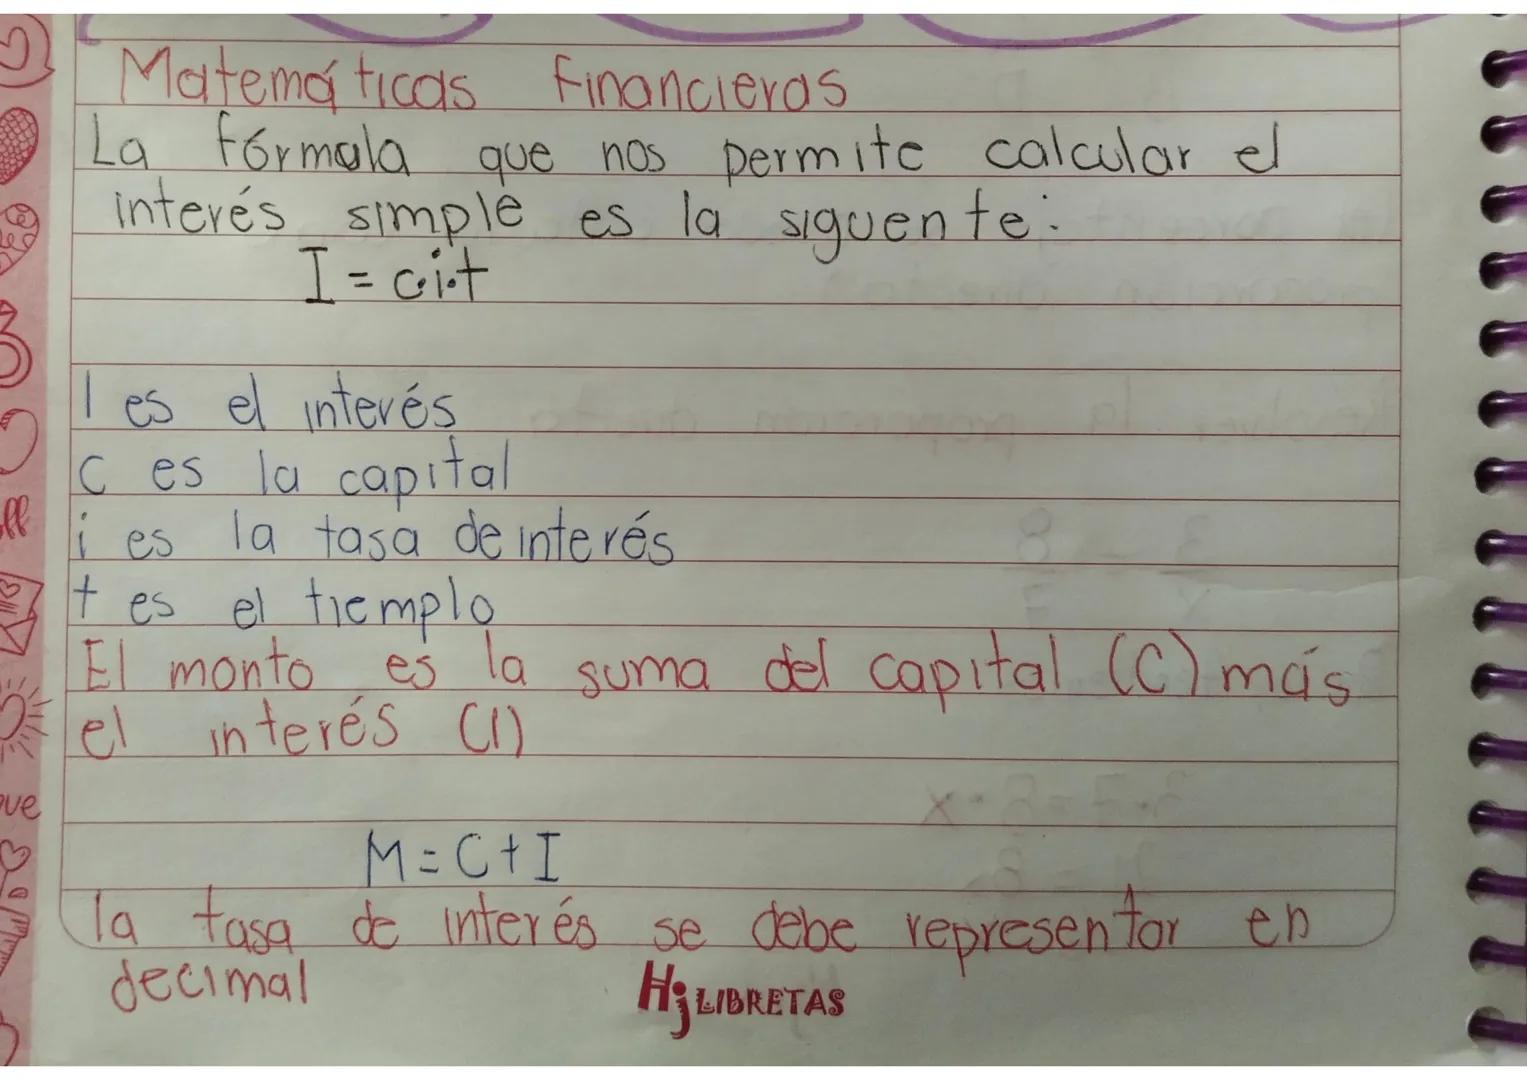 Matemáticas Financieras
La fórmula que nos permite calcular el
interés simple es la siguente:
I = c.i.t
I es el interés
C es la capital
i es la tasa de interés
t es el tiemplo
El monto es la suma del capital (C) más
el interés (I)
M = C + I
la tasa de interés se debe representar en
decimal
Hj LIBRETAS